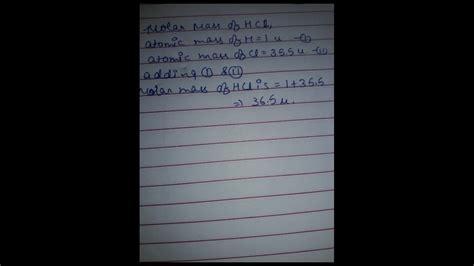 Molar mass of HCl,
atomic mass of H = 1 u -(i)
atomic mass of Cl = 35.5 u -(ii)
adding (i) & (ii)
Molar mass of HCl is = 1+35.5
⇒ 36.5 u.